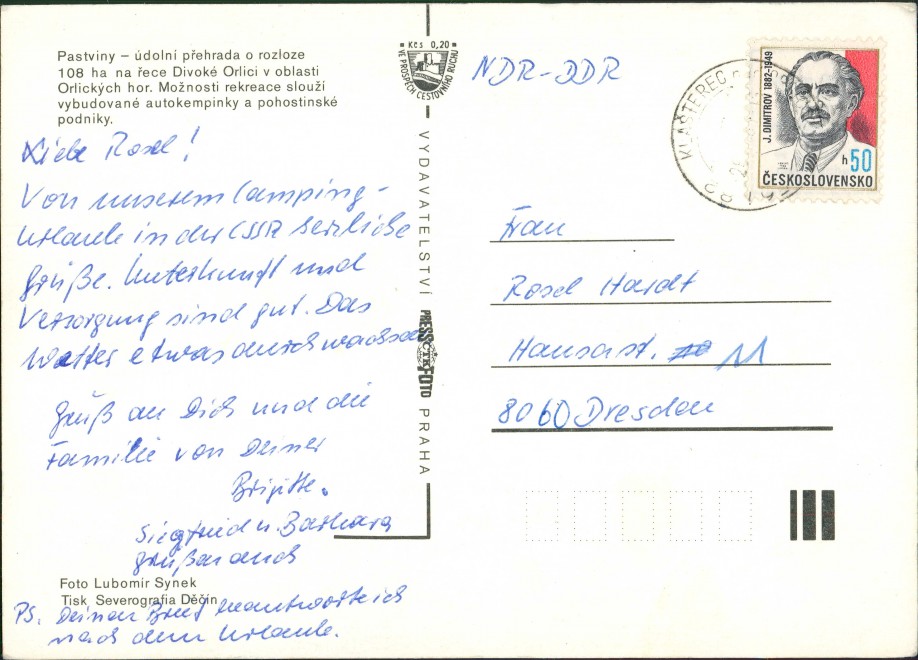 Pastviny – údolní přehrada o rozloze
108 ha na řece Divoké Orlici v oblasti
Orlických hor. Možnosti rekreace slouží
vybudované autokempinky a pohostinské
podniky.
Liebe Rosel!
Von unserem Camping-
urlaub in der CSSR herzliche
Grüße. Unterkunft und
Versorgung sind gut. Das
Wetter etwas durchwachsen
Gruß an Dich und die
Familie von Deiner
Brigitte.
Siegfried u. Barbara
grüßen auch
Foto Lubomír Synek
Tisk Severografia Děčín
PS. Deinen Brief beantworte ich
nach dem Urlaub.
Kčs 0,20
VE PROSPĚCH CESTOVNÍHO RUCHU
VYDAVATELSTVÍ PRESSFOTO PRAHA
ČTK
NDR-DDR
KLÁŠTEREC
J. DIMITROV 1882-1949
h 50
ČESKOSLOVENSKO
Frau
Rosel Hardt
Hansastr. 11
8060 Dresden